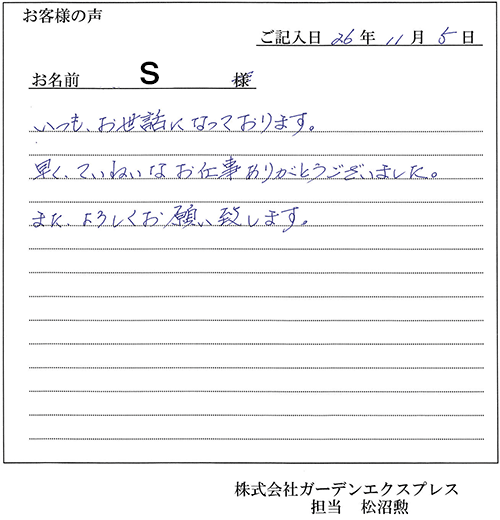 お客様の声
ご記入日 26年 11月 5日
お名前 S 様
いつも、お世話になっております。
早く、ていねいなお仕事ありがとうございました。
また、よろしくお願い致します。
株式会社ガーデンエクスプレス
担当 松沼勲